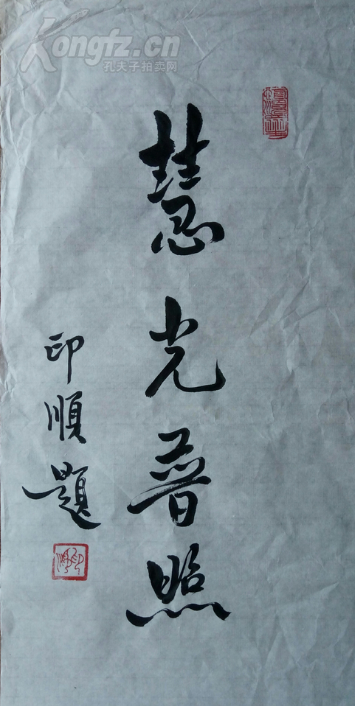 Kongfz.cn
孔夫子拍卖网
慧光普照
印順題